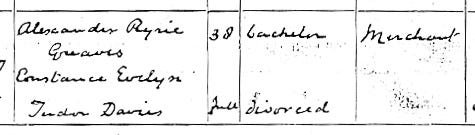 Alexander Pyrie 38 bachelor Merchant
Greaves
7
Constance Evelyn
Tudor Davies full divorced